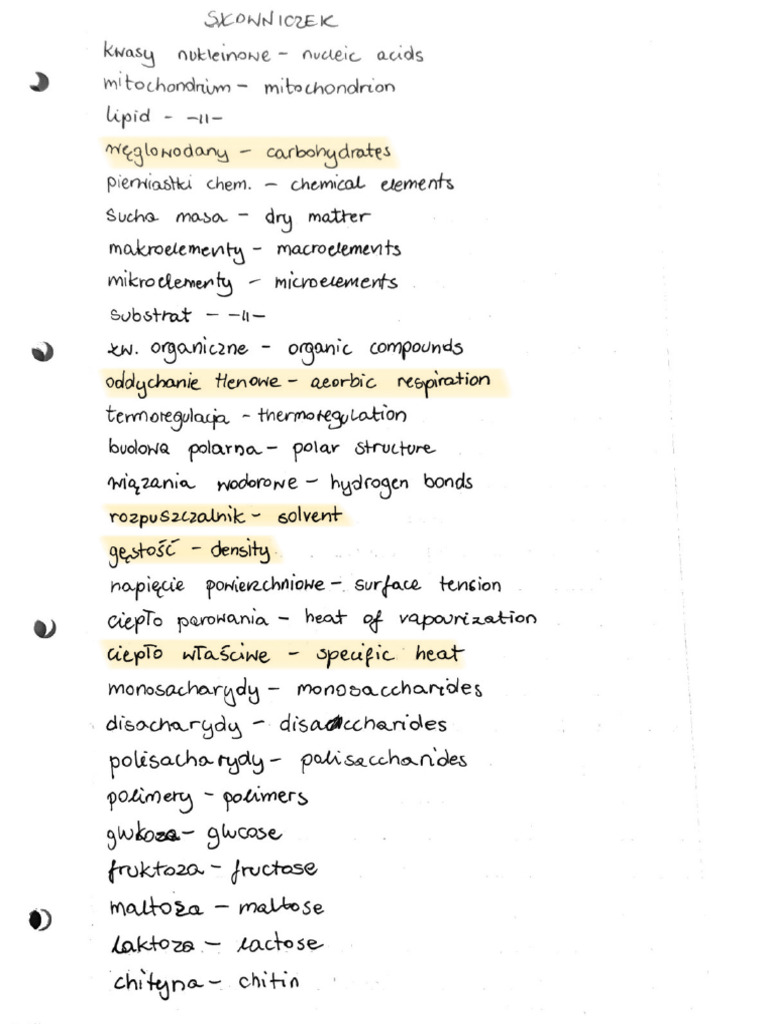 SŁOWNICZEK
kwasy nukleinowe - nucleic acids
mitochondrium - mitochondrion
lipid - -11-
węglowodany - carbohydrates
pierwiastki chem. - chemical elements
sucha masa - dry matter
makroelementy - macroelements
mikroelementy - microelements
substrat - -11-
zw. organiczne - organic compounds
oddychanie tlenowe - aeorbic respiration
termoregulacja - thermoregulation
budowa polarna - polar structure
wiązania wodorowe - hydrogen bonds
rozpuszczalnik - solvent
gęstość - density
napięcie powierzchniowe - surface tension
ciepło parowania - heat of vapourization
ciepło właściwe - specific heat
monosacharydy - monosaccharides
disacharydy - disaccharides
polisacharydy - polisaccharides
polimery - polimers
glukoza - glucose
fruktoza - fructose
maltoza - maltose
laktoza - lactose
chityna - chitin